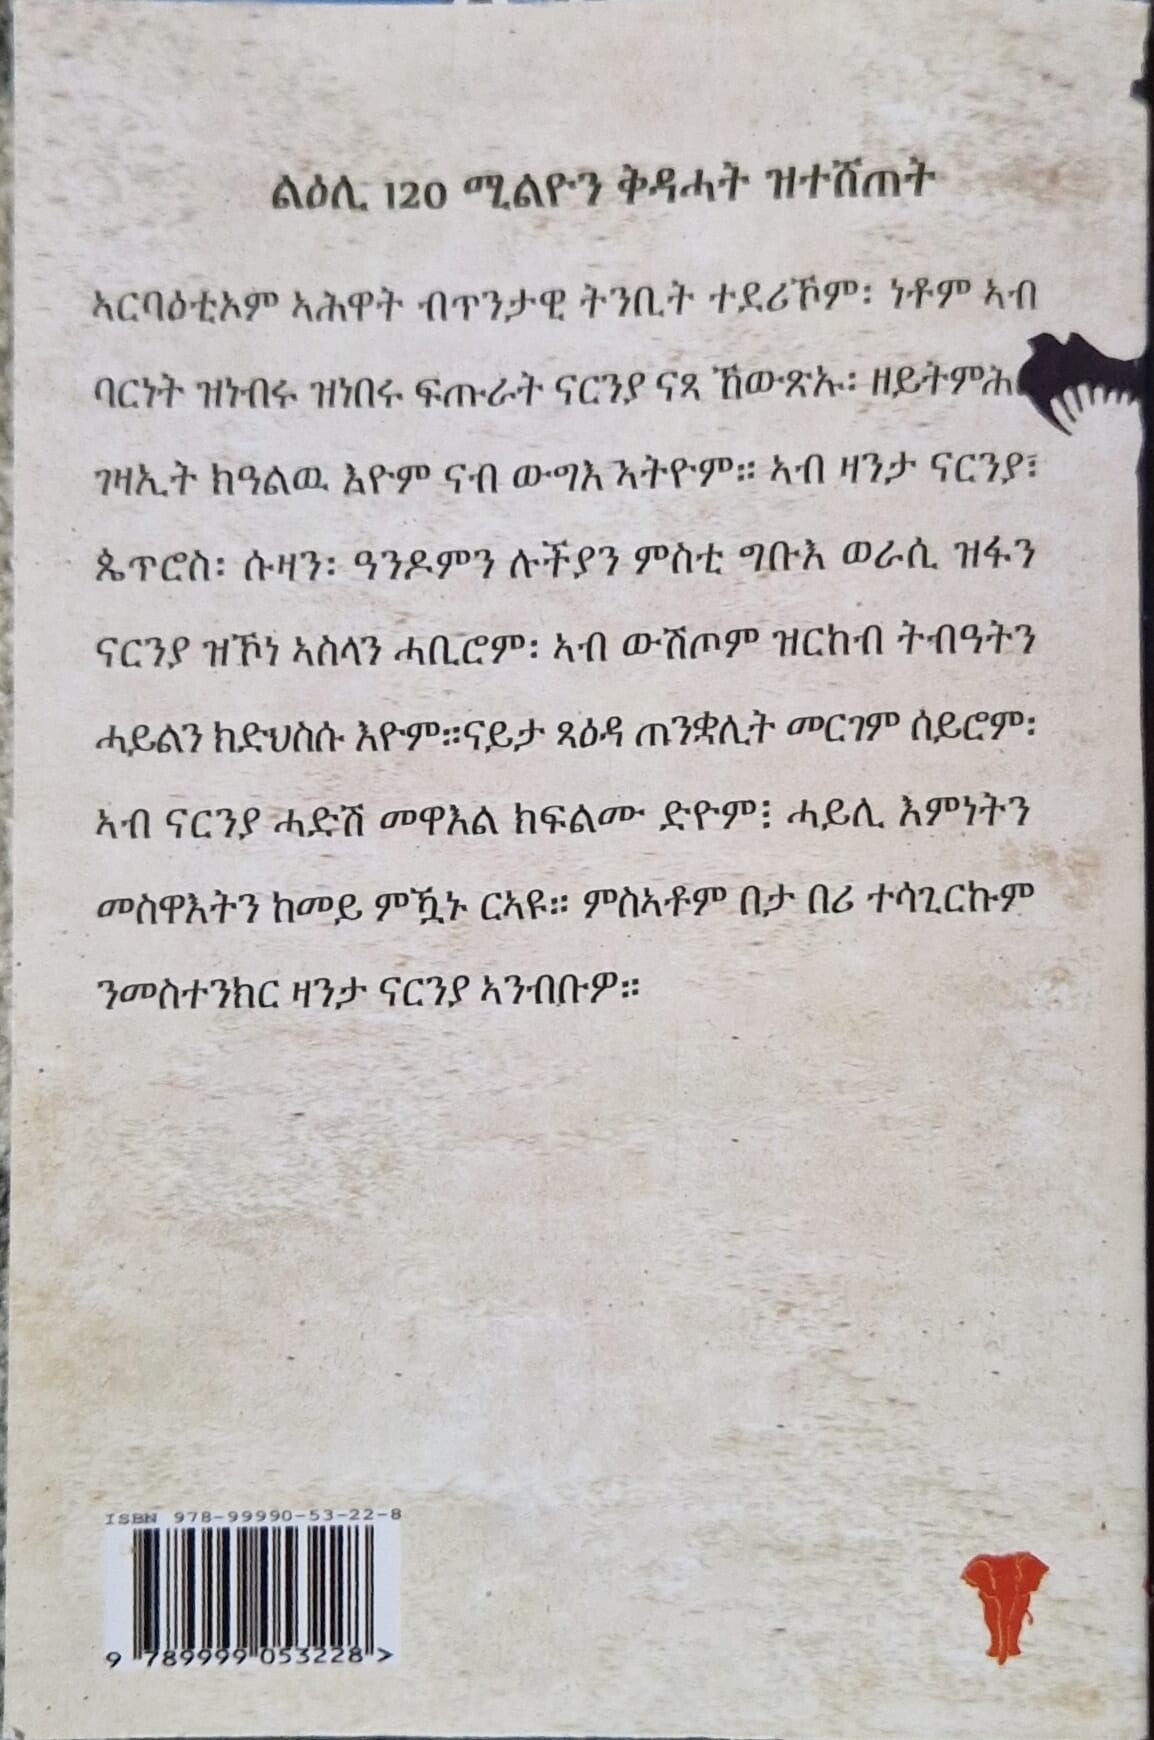 ልዕሊ 120 ሚልዮን ቅዳሓት ዝተሸጠት
ኣርባዕቲኦም ኣሕዋት ብጥንታዊ ትንቢት ተደሪኾም፡ ነቶም ኣብ
ባርነት ዝነብሩ ዝነበሩ ፍጡራት ናርንያ ናጻ ኸውጽኡ፡ ዘይትምሕ
ገዛኢት ክዓልዉ እዮም ናብ ውግእ ኣትዮም። ኣብ ዛንታ ናርንያ፣
ጴጥሮስ፡ ሱዛን፡ ዓንዶምን ሉችያን ምስቲ ግቡእ ወራሲ ዝፋን
ናርንያ ዝኾነ ኣስላን ሓቢሮም፡ ኣብ ውሽጦም ዝርከብ ትብዓትን
ሓይልን ክድህስሱ እዮም።ናይታ ጻዕዳ ጠንቋሊት መርገም ሰይሮም፡
ኣብ ናርንያ ሓድሽ መዋእል ክፍልሙ ድዮም፧ ሓይሊ እምነትን
መስዋእትን ከመይ ምዃኑ ርኣዩ። ምስኣቶም በታ በሪ ተሳጊርኩም
ንመስተንክር ዛንታ ናርንያ ኣንብቡዎ።
ISBN 978-99990-53-22-8
9 789999 053228 >